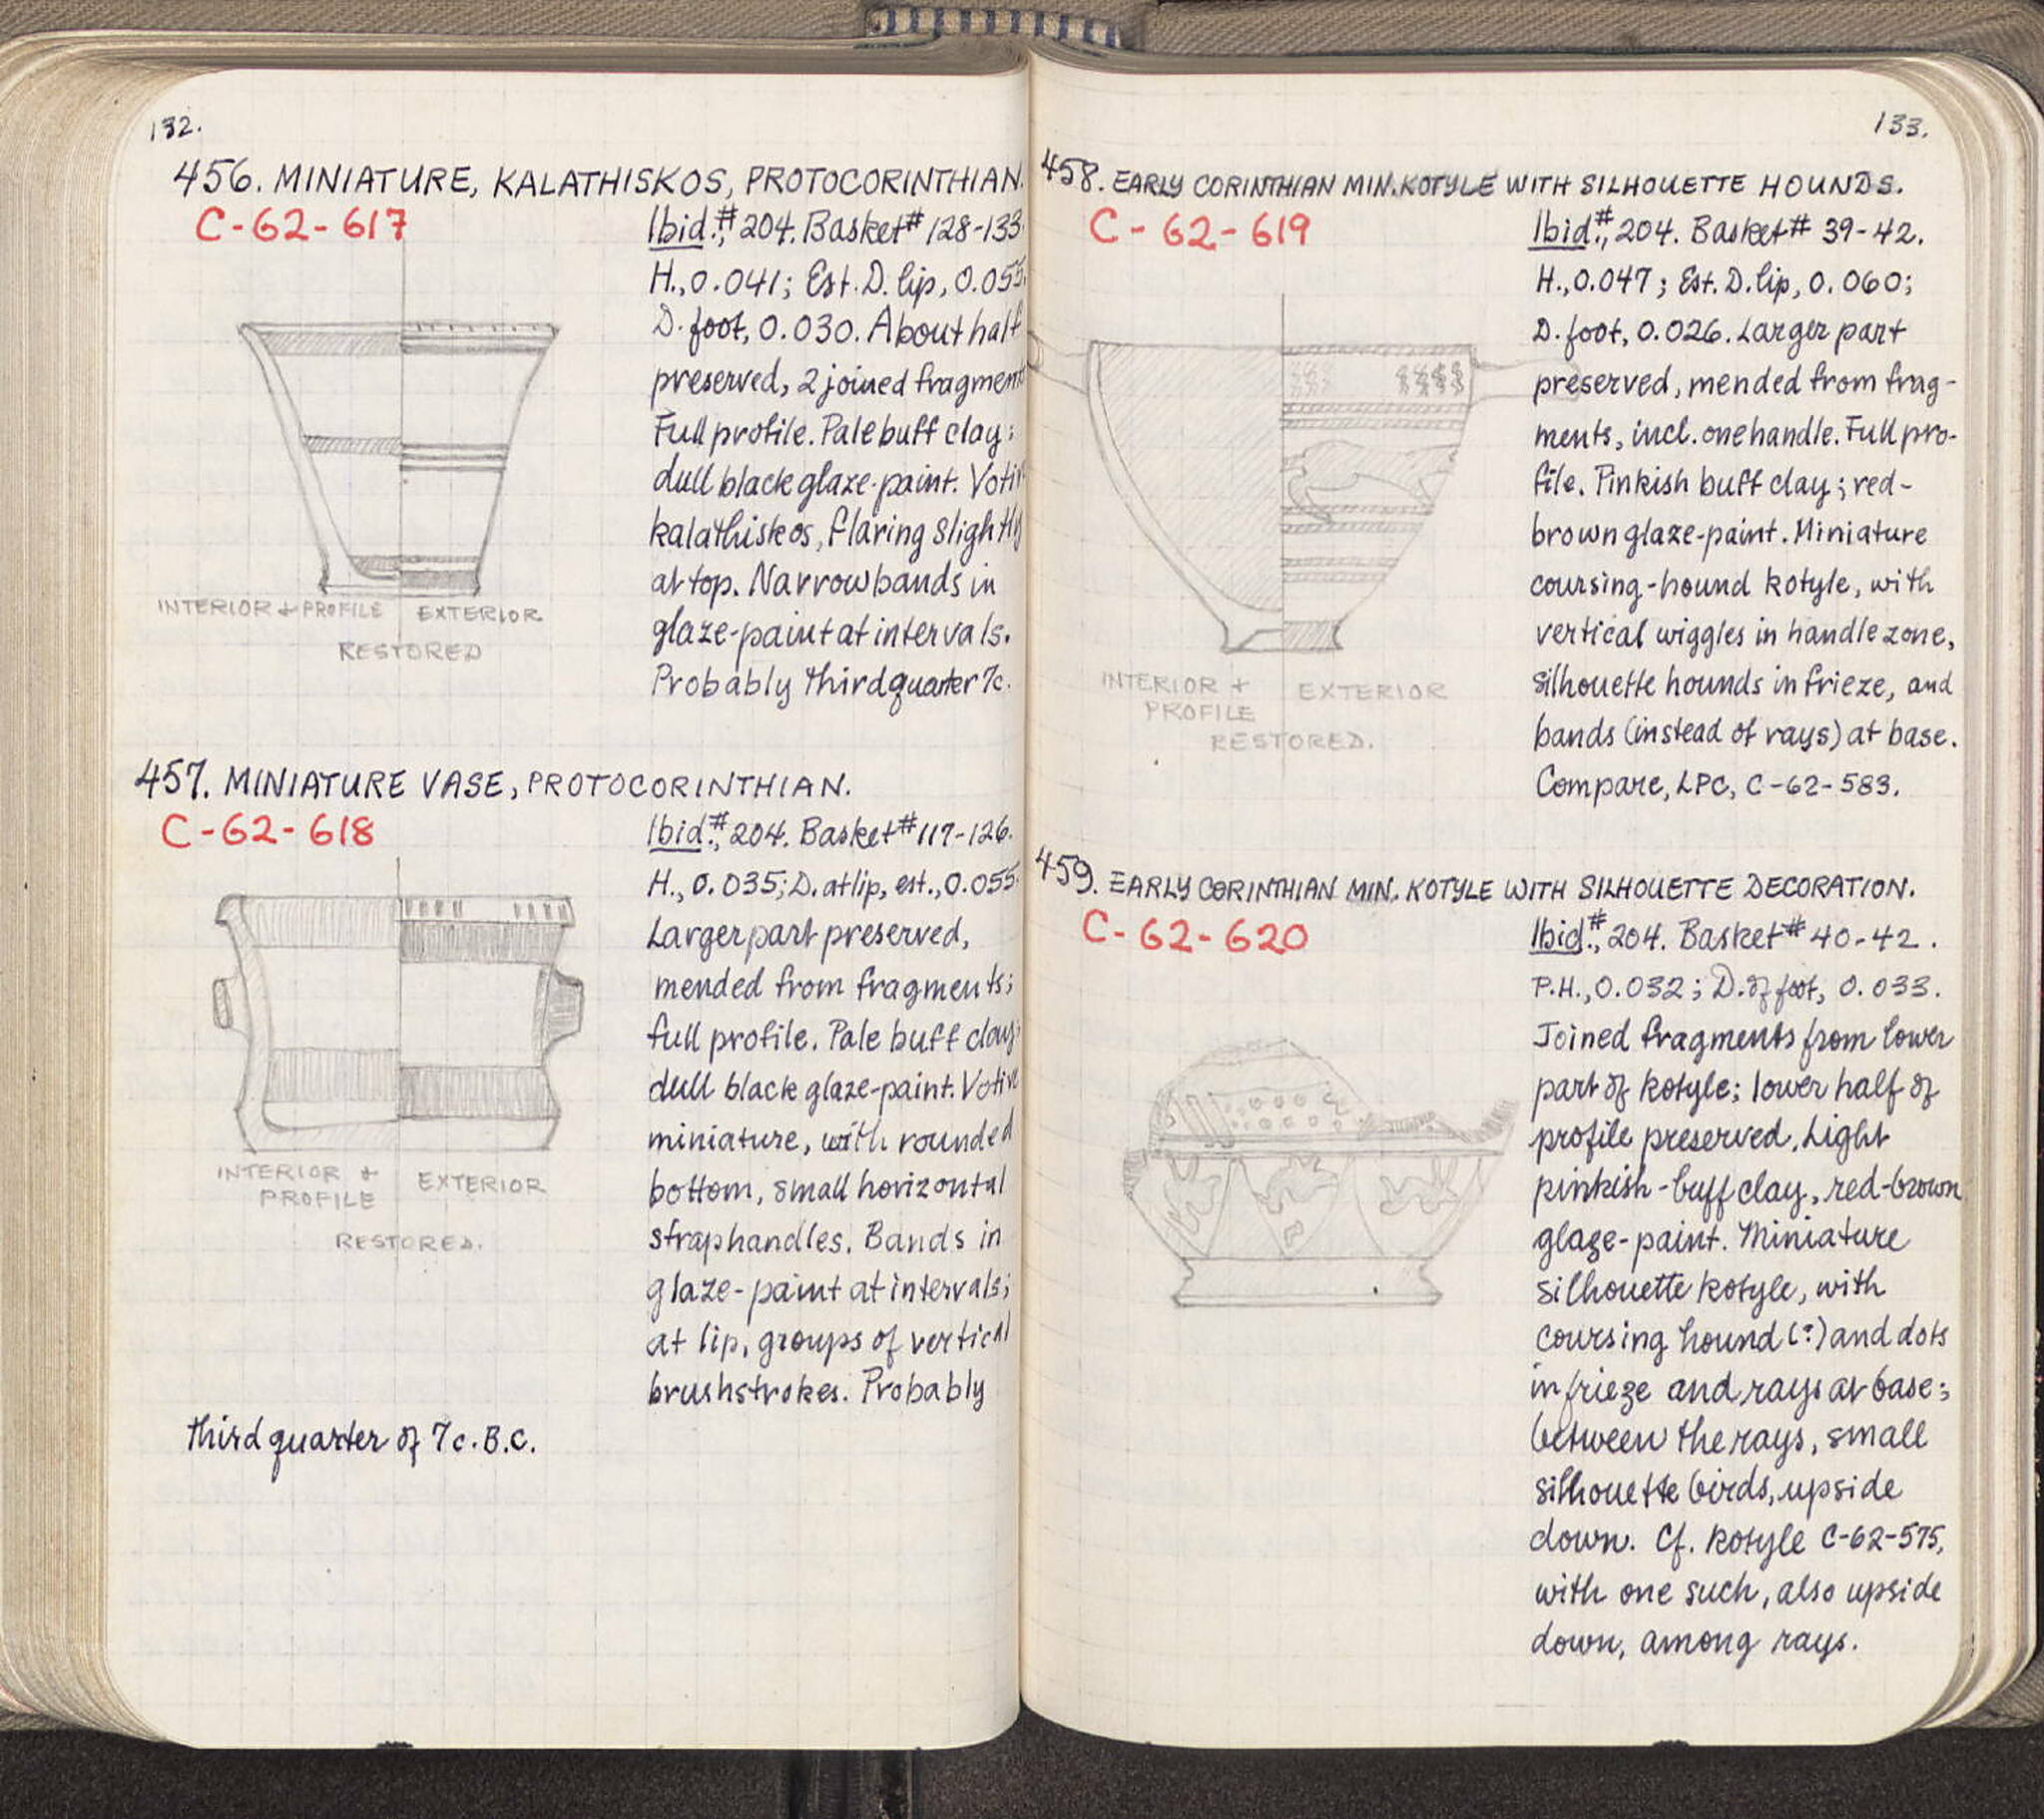 132.
456. MINIATURE, KALATHISKOS, PROTOCORINTHIAN.
C-62-617
Ibid., #204. Basket # 128-133.
H., 0.041; Est. D. lip, 0.055.
D. foot, 0.030. About half
preserved, 2 joined fragment
Full profile. Pale buff clay;
dull black glaze-paint. Votiv
kalathiskos, flaring slightly
at top. Narrow bands in
glaze-paint at intervals.
Probably third quarter 7c.
INTERIOR + PROFILE EXTERIOR
RESTORED
457. MINIATURE VASE, PROTOCORINTHIAN.
C-62-618
Ibid., #204. Basket # 117-126.
H., 0.035; D. at lip, est., 0.055.
Larger part preserved,
mended from fragments;
full profile. Pale buff clay;
dull black glaze-paint. Votive
miniature, with rounded
bottom, small horizontal
strap handles. Bands in
glaze-paint at intervals;
at lip, groups of vertical
brushstrokes. Probably
third quarter of 7c. B.C.
INTERIOR + EXTERIOR
PROFILE
RESTORED.
133.
458. EARLY CORINTHIAN MIN. KOTYLE WITH SILHOUETTE HOUNDS.
C-62-619
Ibid., #204. Basket # 39-42.
H., 0.047; Est. D. lip, 0.060;
D. foot, 0.026. Larger part
preserved, mended from frag-
ments, incl. one handle. Full pro-
file. Pinkish buff clay; red-
brown glaze-paint. Miniature
coursing-hound kotyle, with
vertical wiggles in handle zone,
silhouette hounds in frieze, and
bands (instead of rays) at base.
Compare, LPC, C-62-583.
INTERIOR + EXTERIOR
PROFILE
RESTORED.
459. EARLY CORINTHIAN MIN. KOTYLE WITH SILHOUETTE DECORATION.
C-62-620
Ibid., #204. Basket # 40-42.
P.H., 0.032; D. of foot, 0.033.
Joined fragments from lower
part of kotyle; lower half of
profile preserved. Light
pinkish-buff clay, red-brown
glaze-paint. Miniature
silhouette kotyle, with
coursing hound (?) and dots
in frieze and rays at base;
between the rays, small
silhouette birds, upside
down. Cf. kotyle C-62-575,
with one such, also upside
down, among rays.